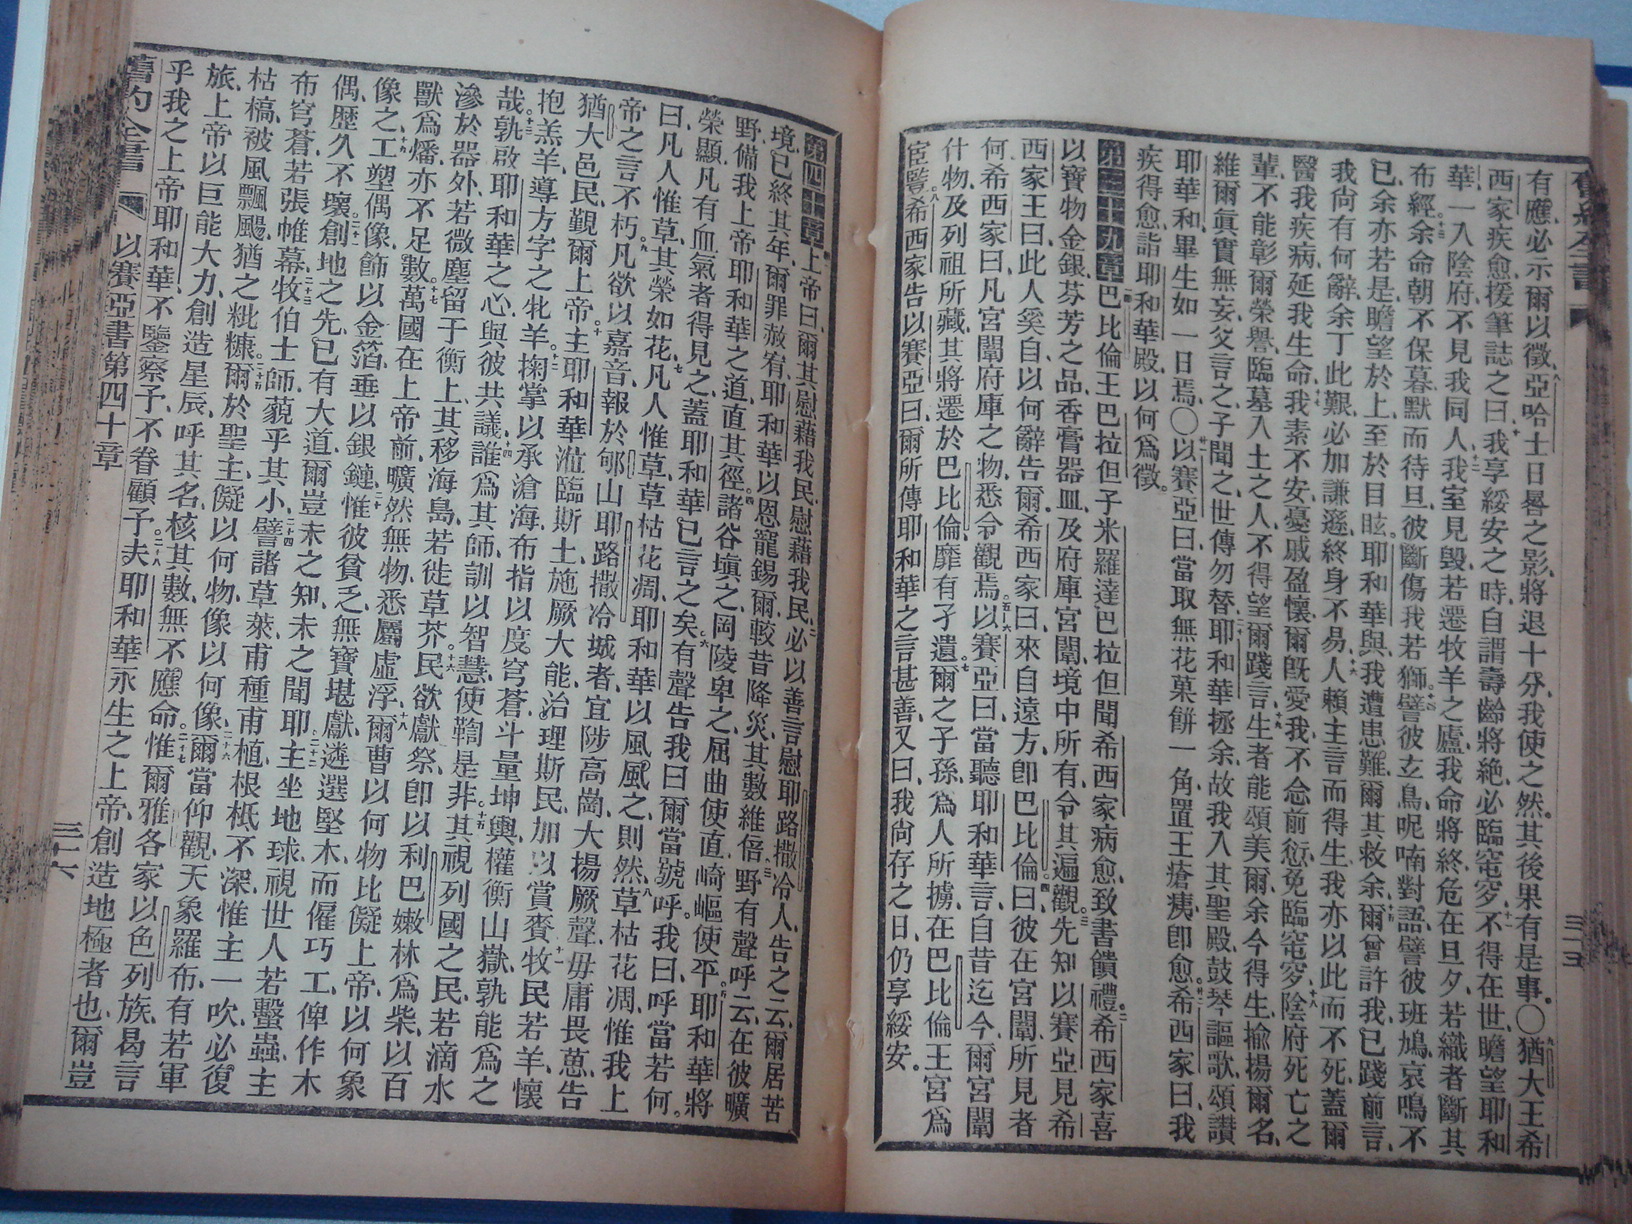 有應必示爾以徵亞哈士日晷之影將退十分我使之然其後果有是事○猶大王希
西家疾愈援筆誌之曰我享綏安之時自謂壽齡將絕必臨窀穸不得在世瞻望耶和
華一入陰府不見我同人我室見毀若遷牧羊之廬我命將終危在旦夕若織者斷其
布經余命朝不保暮默而待旦彼斷傷我若獅譬彼玄鳥呢喃對語譬彼班鳩哀鳴不
已余亦若是瞻望於上至於目眩耶和華與我遭患難爾其救余爾曾許我已踐前言
我尚有何辭余丁此艱必加謙遜終身不易人賴主言而得生我亦以此而不死蓋爾
醫我疾病延我生命我素不安憂戚盈懷爾既愛我不念前愆免臨窀穸陰府死亡之
輩不能彰爾榮譽臨墓入土之人不得望爾踐言生者能頌美爾余今得生揄揚爾名
維爾眞實無妄父言之子聞之世傳勿替耶和華拯余故我入其聖殿鼓琴謳歌頌讃
耶華和畢生如一日焉○以賽亞曰當取無花菓餅一角置王瘡痍卽愈希西家曰我
疾得愈詣耶和華殿以何爲徵
第三十九章巴比倫王巴拉但子米羅達巴拉但聞希西家病愈致書饋禮希西家喜
以寶物金銀芬芳之品香膏器皿及府庫宮闈境中所有令其遍觀先知以賽亞見希
西家王曰此人奚自以何辭告爾希西家曰來自遠方卽巴比倫曰彼在宮闈所見者
何希西家曰凡宮闈府庫之物悉令觀焉以賽亞曰當聽耶和華言自昔迄今爾宮闈
什物及列祖所藏其將遷於巴比倫靡有孑遺爾之子孫爲人所擄在巴比倫王宮爲
宦豎希西家告以賽亞曰爾所傳耶和華之言甚善又曰我尚存之日仍享綏安
三十五
第四十章上帝曰爾其慰藉我民慰藉我民必以善言慰耶路撒冷人告之云爾居苦
境已終其年爾罪赦宥耶和華以恩寵錫爾較昔降災其數維倍野有聲呼云在彼曠
野備我上帝耶和華之道直其徑諸谷塡之岡陵卑之屈曲使直崎嶇使平耶和華將
榮顯凡有血氣者得見之蓋耶和華已言之矣有聲告我曰爾當號呼我曰呼當若何
曰凡人惟草其榮如花凡人惟草草枯花凋耶和華以風風之則然草枯花凋惟我上
帝之言不朽凡欲以嘉音報於郇山耶路撒冷城者宜陟高崗大揚厥聲毋庸畏葸告
猶大邑民覲爾上帝主耶和華涖臨斯土施厥大能治理斯民加以賞賚牧民若羊懷
抱羔羊導方字之牝羊掬掌以承滄海布指以度穹蒼斗量坤輿權衡山嶽孰能爲之
哉孰啟耶和華之心與彼共議誰爲其師訓以智慧使鞫是非其視列國之民若滴水
滲於器外若微塵留于衡上其移海島若徙草芥民欲獻祭卽以利巴嫩林爲柴以百
獸爲燔亦不足數萬國在上帝前曠然無物悉屬虛浮爾曹以何物比儗上帝以何象
像之工塑偶像飾以金箔垂以銀鏈惟彼貧乏無寶堪獻遴選堅木而僱巧工俾作木
偶歷久不壞創地之先已有大道爾豈未之知未之聞耶主坐地球視世人若蟿蟲主
布穹蒼若張帷幕牧伯士師藐乎其小譬諸草萊甫種甫植根柢不深惟主一吹必復
枯槁被風飄颺猶之粃糠爾於聖主儗以何物像以何像爾當仰觀天象羅布有若軍
旅上帝以巨能大力創造星辰呼其名核其數無不應命惟爾雅各家以色列族曷言
乎我之上帝耶和華不鑒察予不眷顧予夫耶和華永生之上帝創造地極者也爾豈
舊約全書 以賽亞書第四十章 三十六